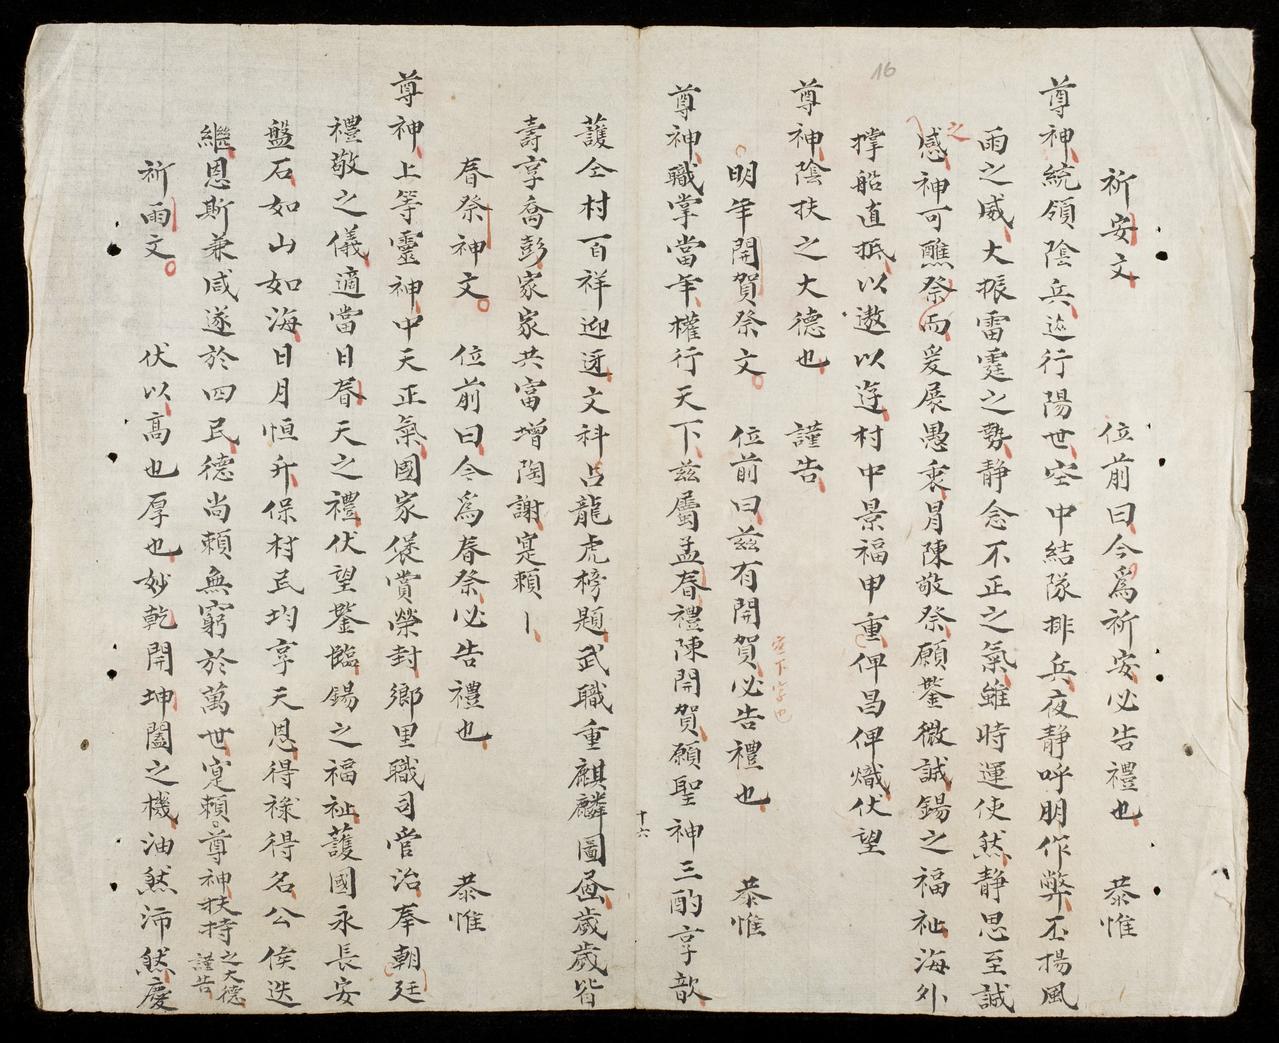 16
祈安文 位前曰今為祈安必告禮也 恭惟
尊神統領陰兵巡行陽世空中結隊排兵夜靜呼朋作弊丕揚風
雨之威大振雷霆之勢靜念不正之氣雖時運使然靜思至誠
之
感神可醮祭而爰展愚衷肙陳敬祭願鑒微誠錫之福祉海外
撑船直抵以遨以遊村中景福申重俾昌俾熾伏望
尊神陰扶之大德也 謹告
明年開賀祭文 位前曰茲有開賀必告禮也 恭惟
尊神職掌當年權行天下茲屬孟春禮陳開賀願聖神三酌享歆
護仝村百祥迎迓文科占龍虎榜題武職重麒麟圖画歲歲皆
十六
壽享喬彭家家共富增陶謝寔賴〡
春祭神文 位前曰今爲春祭必告禮也 恭惟
尊神上等靈神中天正氣國家褒賞榮封鄉里職司管治奉朝廷
禮敬之儀適當日春天之禮伏望鑒臨錫之福祉護國永長安
盤石如山如海日月恒升保村民均享天恩得祿得名公侯迭
繼恩斯兼咸遂於四民德尚賴無窮於萬世寔賴尊神扶持之大德謹告
祈雨文 伏以高也厚也妙乾開坤闔之機油然沛然慶